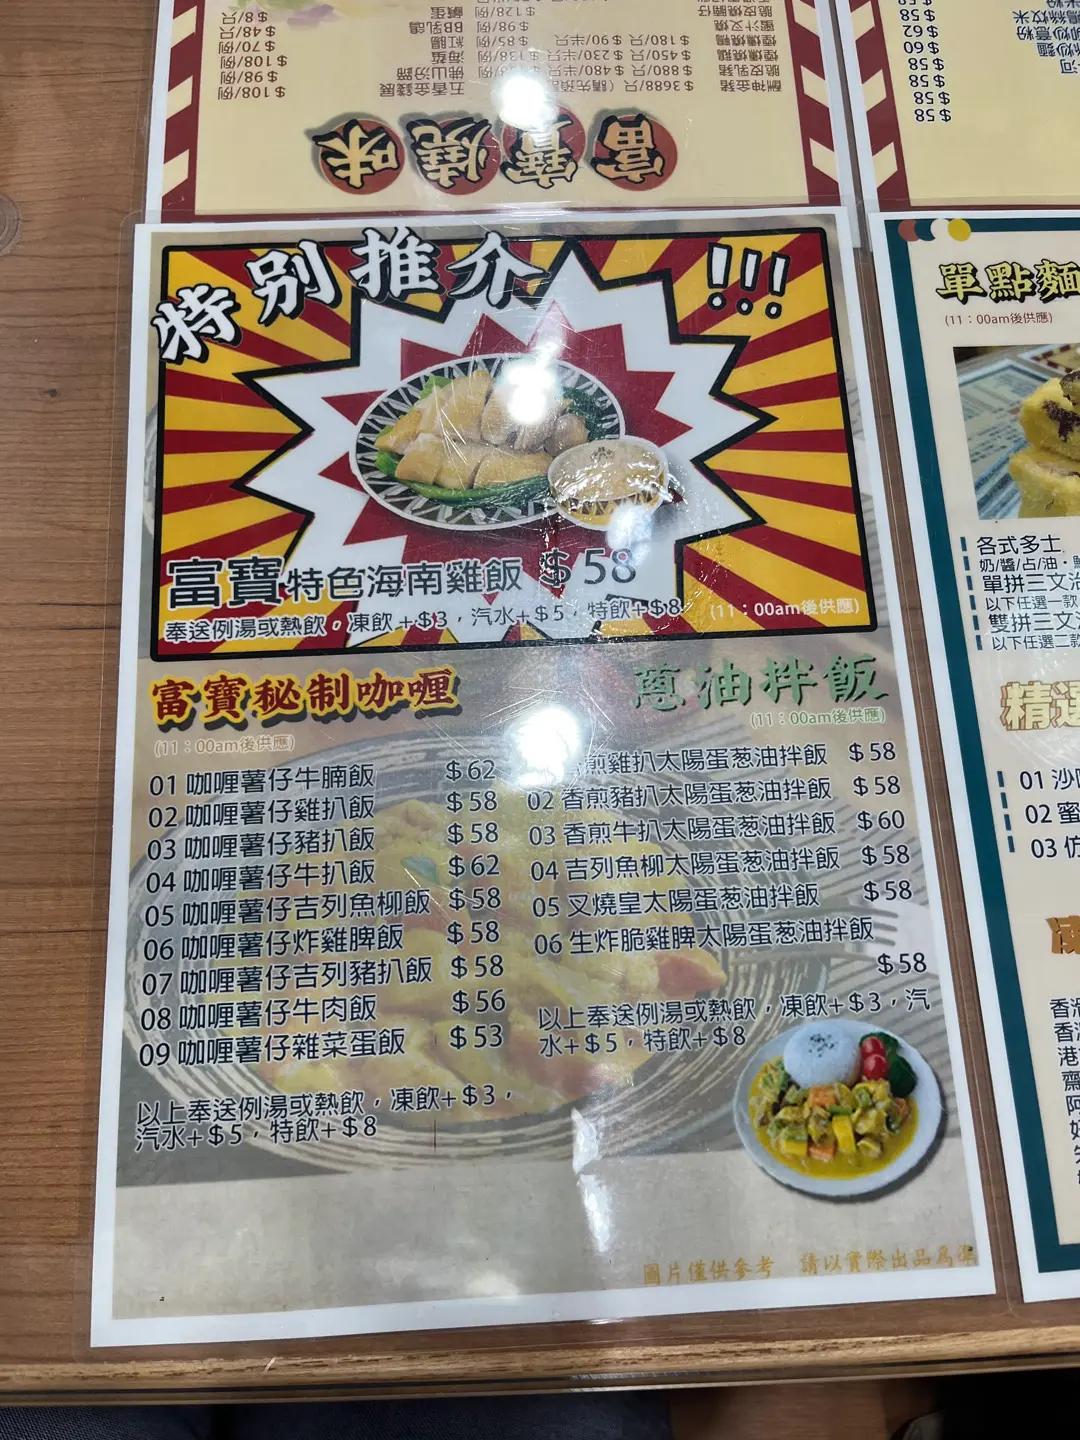 酬神金豬 $3688/只 (請先預
脆皮乳豬 $880/只 $480/半只
燒鵝 $450/只 $230/半只 $138/例
燒鴨 $180/只 $90/半只 $85/例
蜜汁叉燒 $98/例
脆皮燒腩仔 $128/例
五香金錢展 $108/例
佛山汾蹄 $98/例
海蜇 $108/例
紅腸 $70/例
BB乳鴿 $48/只
鹹蛋 $8/只
富寶燒味
$58
$58
$58
$60
$62
$58
$58
特別推介!!!
富寶特色海南雞飯 $58
奉送例湯或熱飲，凍飲+$3，汽水+$5，特飲+$8 (11：00am後供應)
富寶秘制咖喱
(11：00am後供應)
01 咖喱薯仔牛腩飯 $62
02 咖喱薯仔雞扒飯 $58
03 咖喱薯仔豬扒飯 $58
04 咖喱薯仔牛扒飯 $62
05 咖喱薯仔吉列魚柳飯 $58
06 咖喱薯仔炸雞脾飯 $58
07 咖喱薯仔吉列豬扒飯 $58
08 咖喱薯仔牛肉飯 $56
09 咖喱薯仔雜菜蛋飯 $53
以上奉送例湯或熱飲，凍飲+$3，
汽水+$5，特飲+$8
蔥油拌飯
(11：00am後供應)
煎雞扒太陽蛋葱油拌飯 $58
02 香煎豬扒太陽蛋葱油拌飯 $58
03 香煎牛扒太陽蛋葱油拌飯 $60
04 吉列魚柳太陽蛋葱油拌飯 $58
05 叉燒皇太陽蛋葱油拌飯 $58
06 生炸脆雞脾太陽蛋葱油拌飯
$58
以上奉送例湯或熱飲，凍飲+$3，汽
水+$5，特飲+$8
圖片僅供參考 請以實際出品為準
單點麵
(11：00am後供應)
各式多士
奶/醬/占/油·
單拼三文治
以下任選一款
雙拼三文
以下任選二款
精選
01 沙
02 蜜
03 仿
凍
香滑
香
港
齋
阿